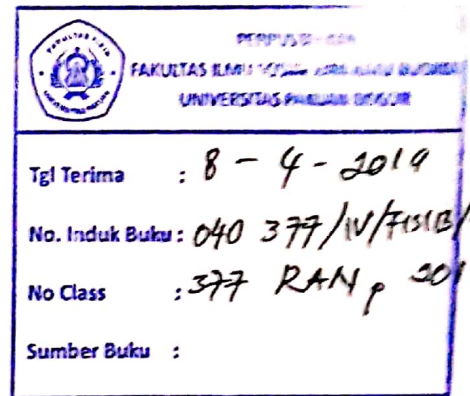 FAKULTAS ILMU
UNIVERSITAS PAKUAN BOGOR
Tgl Terima : 8 - 4 - 2019
No. Induk Buku : 040 377/IV/FISIB/
No Class : 377 RAN p 201
Sumber Buku :